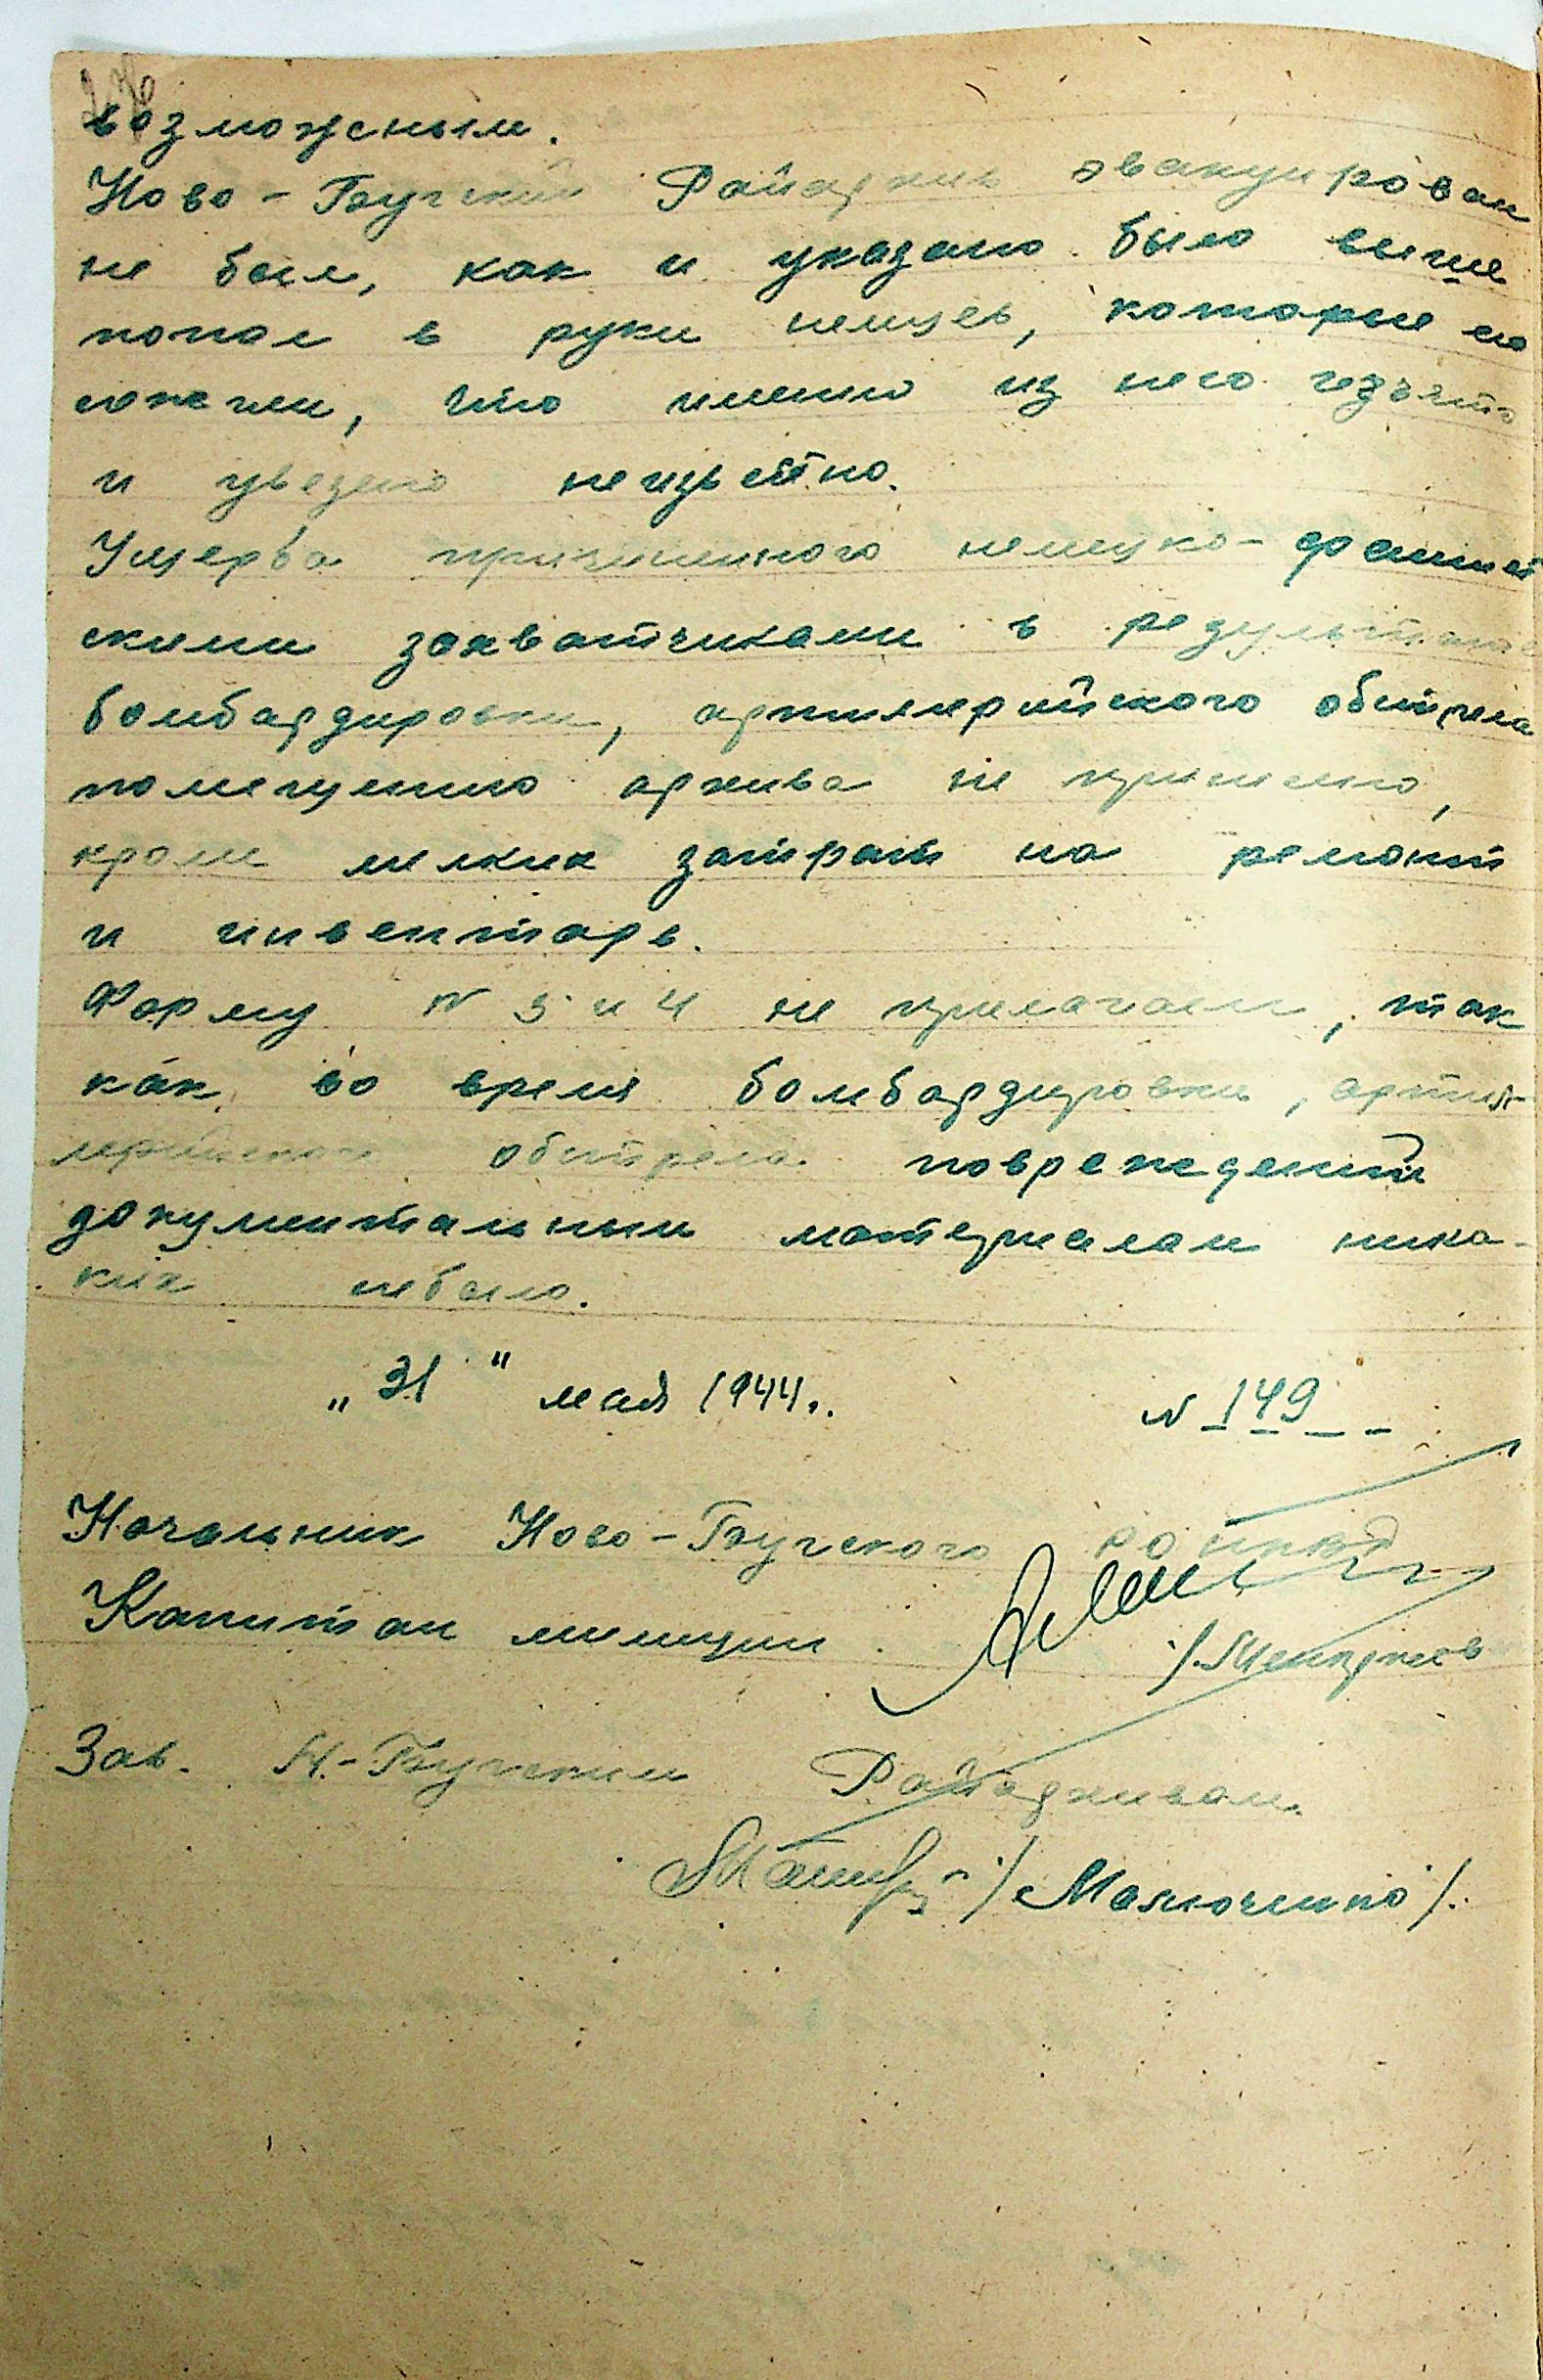 возможным.
Ново-Бугский Райархив эвакуирован
не был, как и указано было выше
попал в руки немцев, которые его
сожгли, что именно из него изъято
и увезено неизвестно.
Ущерба причиненного немецко-фашист
скими захватчиками в результате
бомбардировки, артилерийского обстрела
помещению архива не принесено,
кроме мелких затрат на ремонт
и инвентарь.
Форму N 3 и 4 не прилагаем, так
как во время бомбардировки, артил-
лерийского обстрела повреждений
документальным материалам ника-
ких небыло.
„31" мая 1944г. N 149
Начальник Ново-Бугского РО НКВД
Капитан милиции
Зав. Н.-Бугским Райархивом